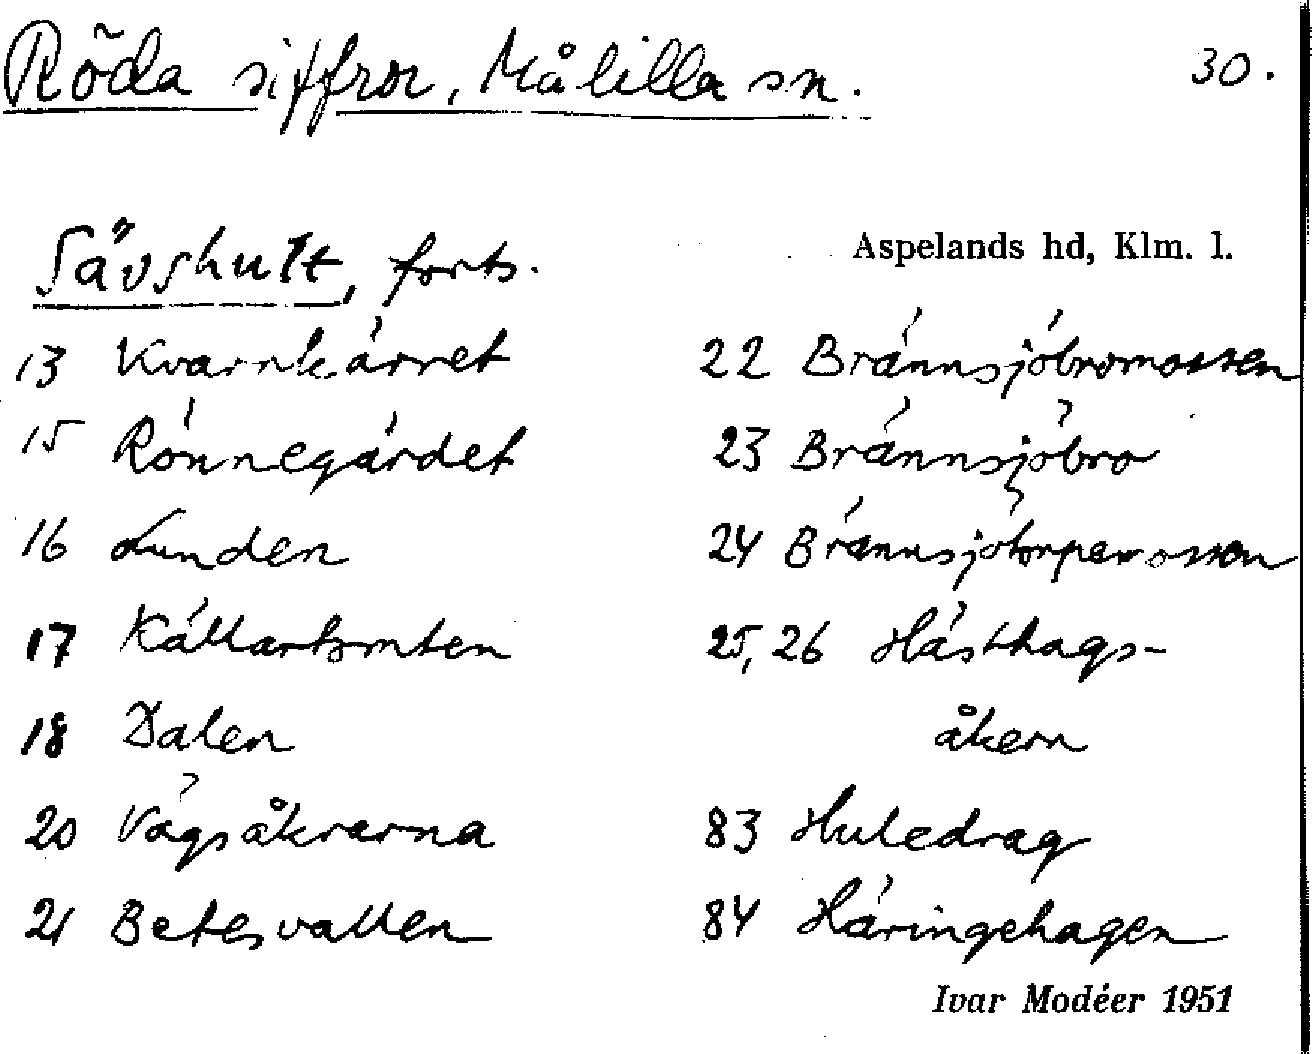 Röda siffror, Målilla sn.
30.
Sävshult, forts.
Aspelands hd, Klm. l.
13 Kvarnkärret
15 Rönnegärdet
16 Lunden
17 Källartomten
18 Dalen
20 Vägsåkrarna
21 Betesvallen
22 Brännsjöbromossen
23 Brännsjöbro
24 Brännsjötorpemossen
25, 26 Hästhags-
åkern
83 Huledrag
84 Häringehagen
Ivar Modéer 1951